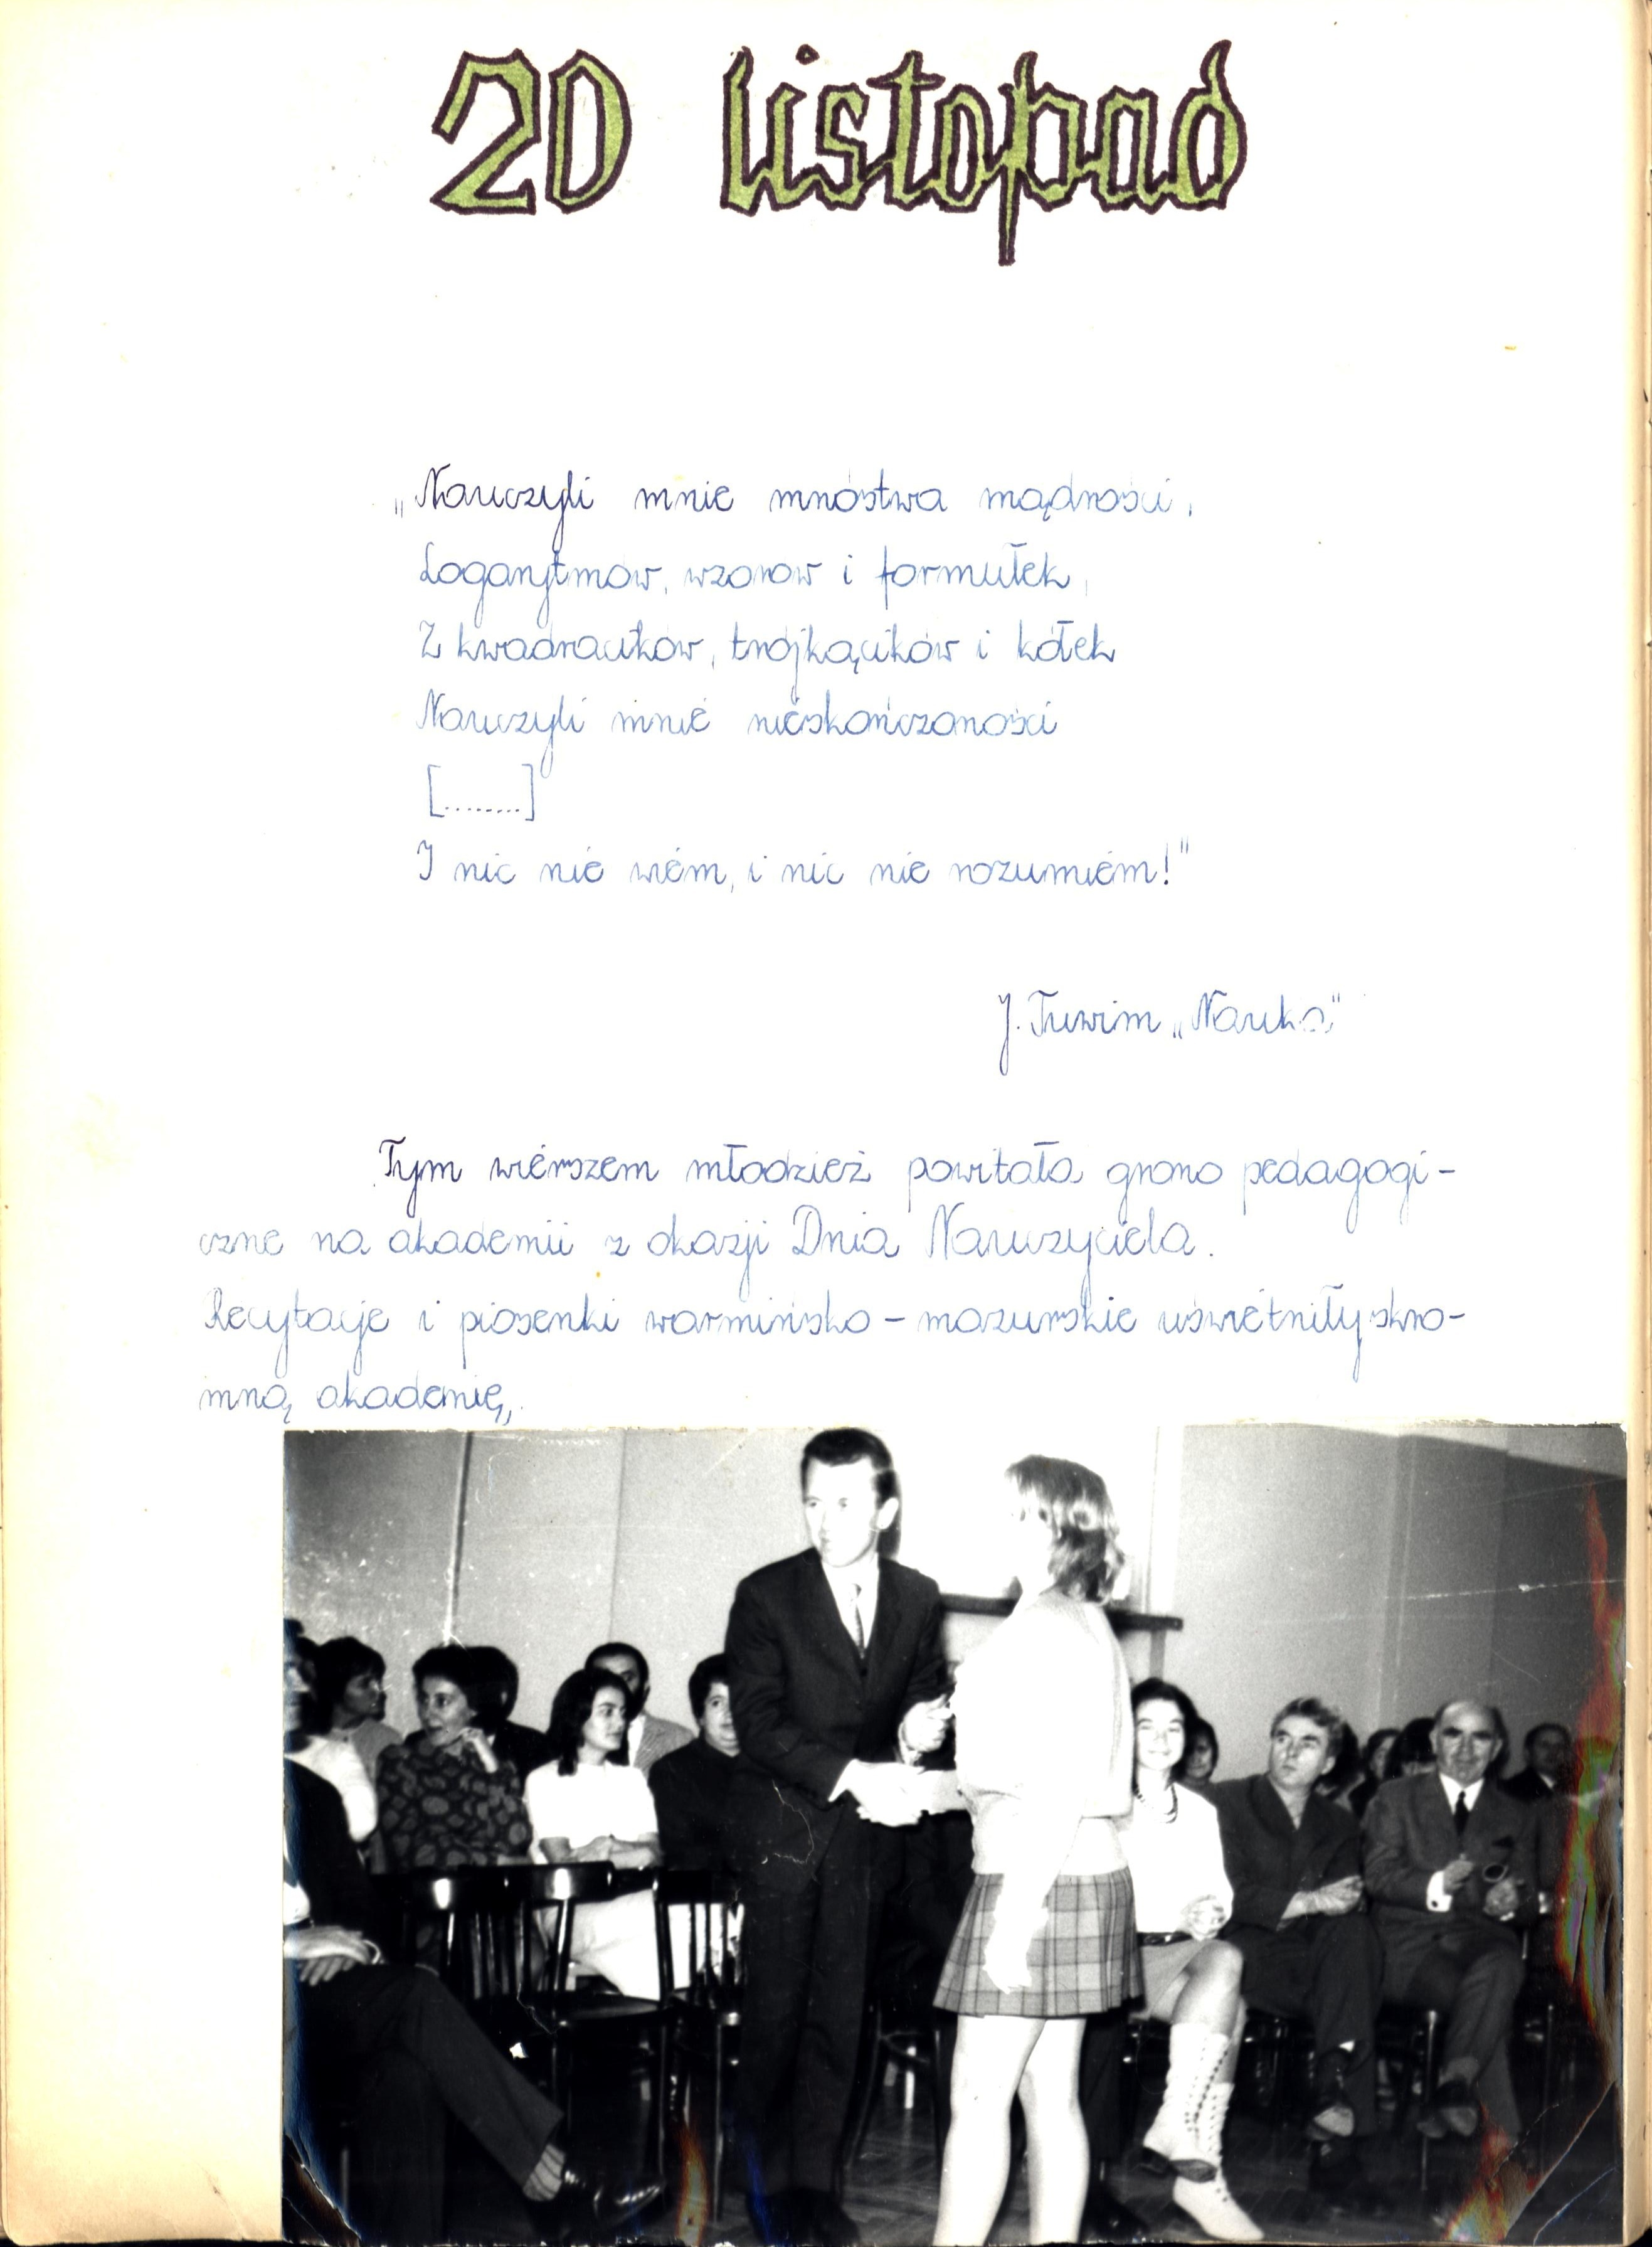 20 listopad
„Nauczyli mnie mnóstwa mądrości,
Logarytmów, wzorów i formułek,
Z kwadracików, trójkącików i kółek
Nauczyli mnie nieskończoności
[........]
I nic nie wiem, i nic nie rozumiem!"
J. Tuwim „Nauka"
Tym wierszem młodzież powitała grono pedagogi-
czne na akademii z okazji Dnia Nauczyciela.
Recytacje i piosenki warmińsko-mazurskie uświetniły skro-
mną akademię,.